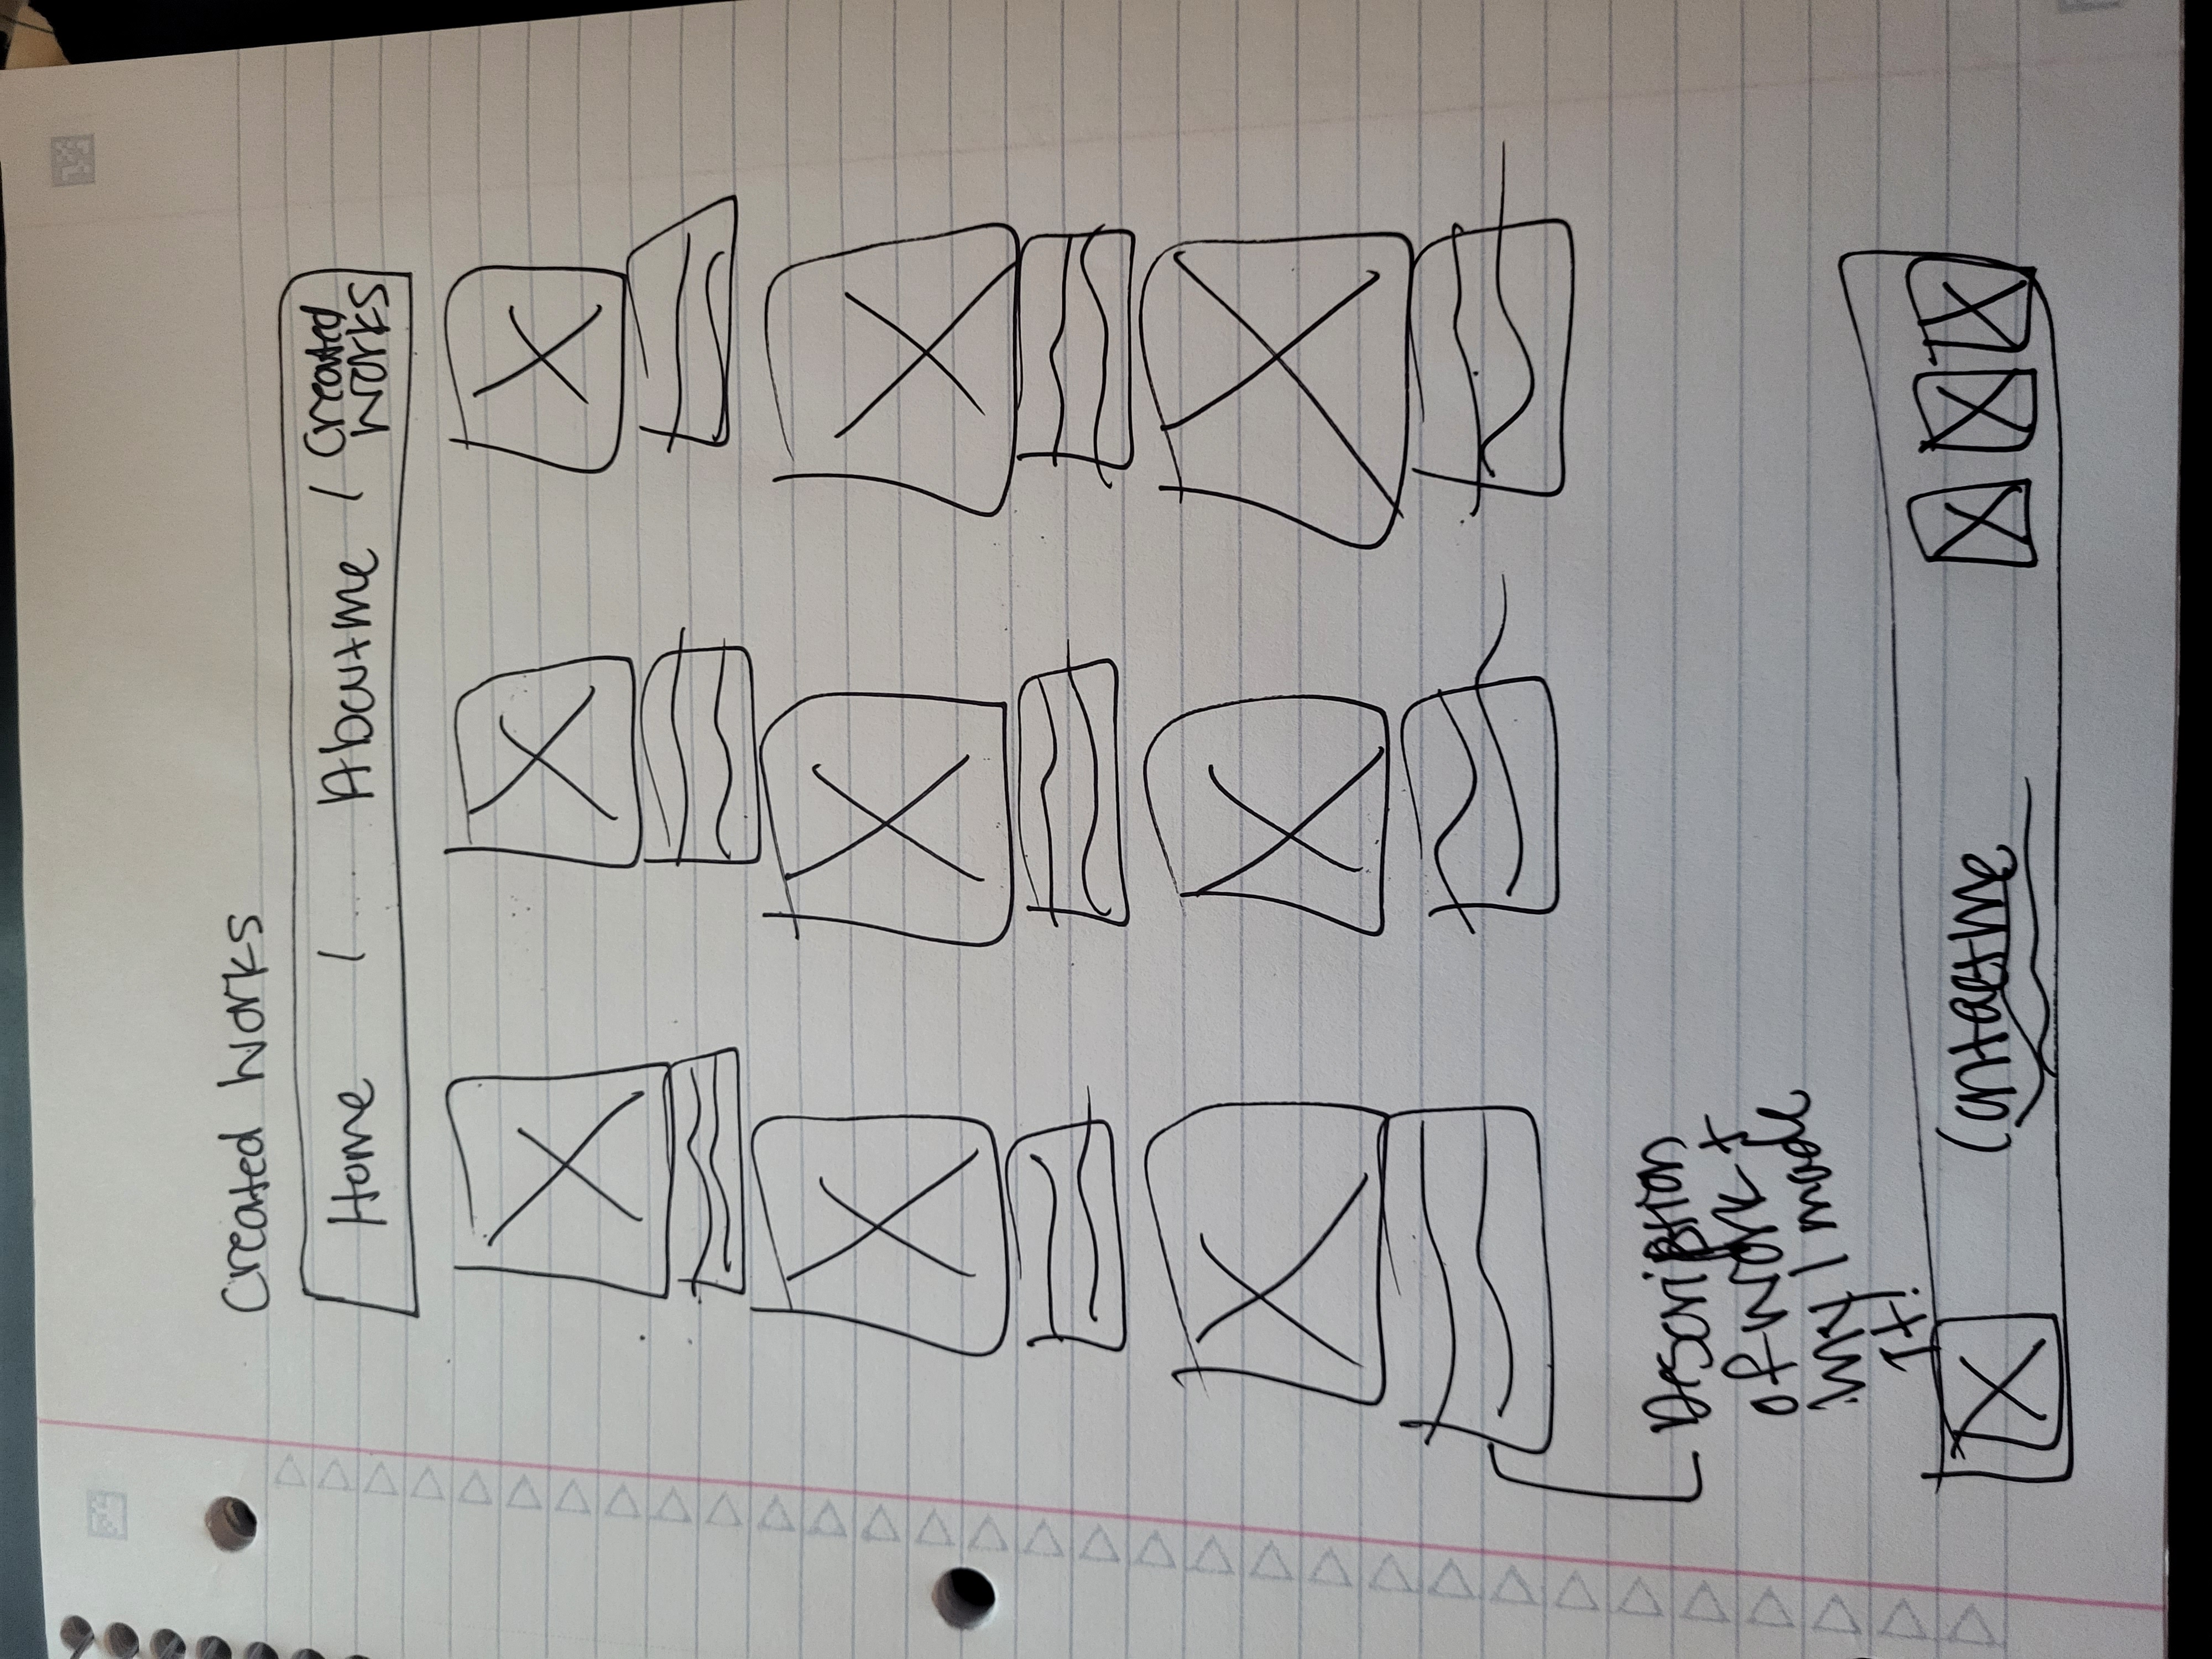 Created Works
Home / About me / Created
Works
Description
of work +
why I made
It!
Contact me